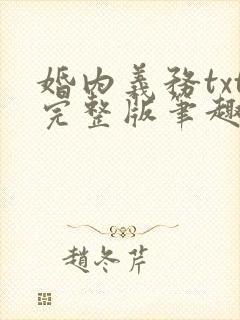 婚內義務txt
完整版筆趣
趙冬芹